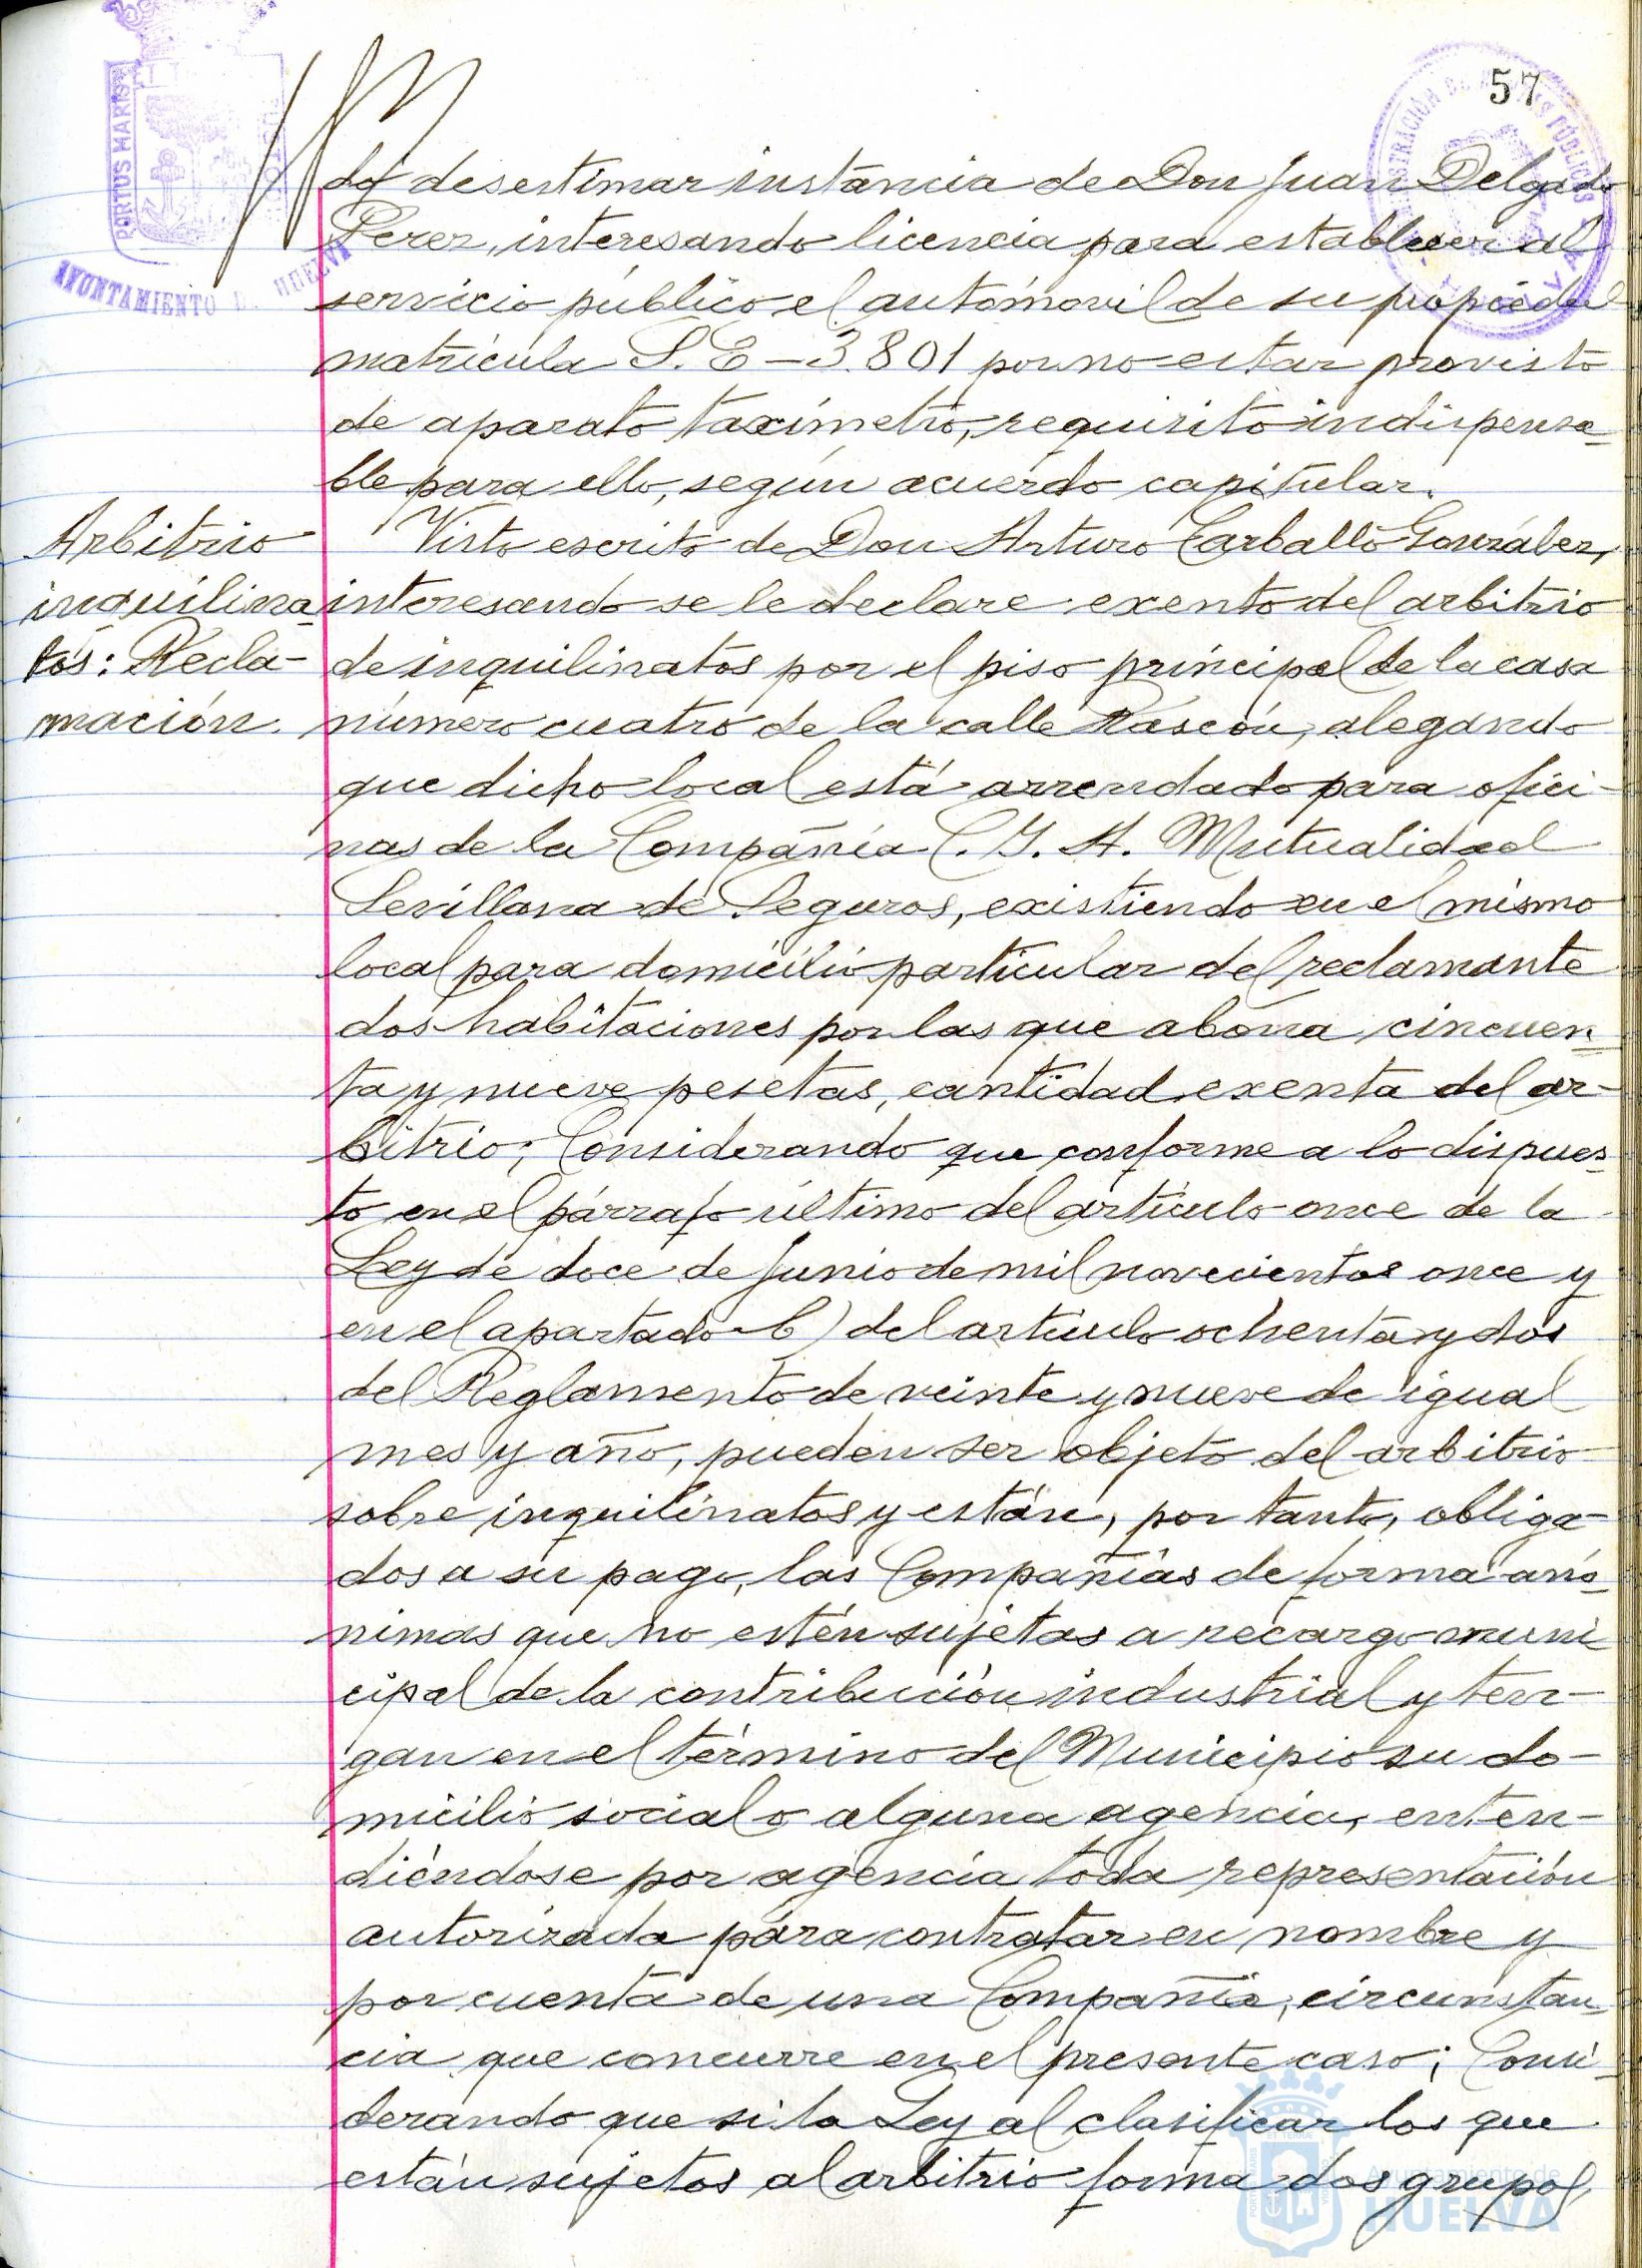 57
PORTUS MARIS
AYUNTAMIENTO DE HUELVA
do desestimar instancia de Don Juan Delgado
Perez, interesando licencia para establecer al
servicio público el automovil de su propiedad
matrícula S.E-3.801 por no estar provisto
de aparato taxímetro, requisito indispensa-
ble para ello, según acuerdo capitular.
Arbitrio
inquilina-
tos: Recla-
mación.
Visto escrito de Don Arturo Carballo González,
interesando se le declare exento del arbitrio
de inquilinatos por el piso principal de la casa
número cuatro de la calle Rascón, alegando
que dicho local está arrendado para ofici-
nas de la Compañía C.G.A. Mutualidad
Sevillana de Seguros, existiendo en el mismo
local para domicilio particular del reclamante
dos habitaciones por las que abona cincuen-
ta y nueve pesetas, cantidad exenta del ar-
bitrio; Considerando que conforme a lo dispues-
to en el párrafo último del artículo once de la
Ley de doce de Junio de mil novecientos once y
en el apartado b) del artículo ochenta y dos
del Reglamento de veinte y nueve de igual
mes y año, pueden ser objeto del arbitrio
sobre inquilinatos y están, por tanto, obliga-
dos a su pago, las Compañías de forma anó-
nimas que no estén sujetas a recargo muni
cipal de la contribución industrial y ten-
gan en el término del Municipio su do-
micilio social o alguna agencia, enten-
diéndose por agencia toda representación
autorizada para contratar en nombre y
por cuenta de una Compañía, circunstan-
cia que concurre en el presente caso; Consi-
derando que si la Ley al clasificar los que
están sujetos al arbitrio forma dos grupos
Ayuntamiento de
HUELVA